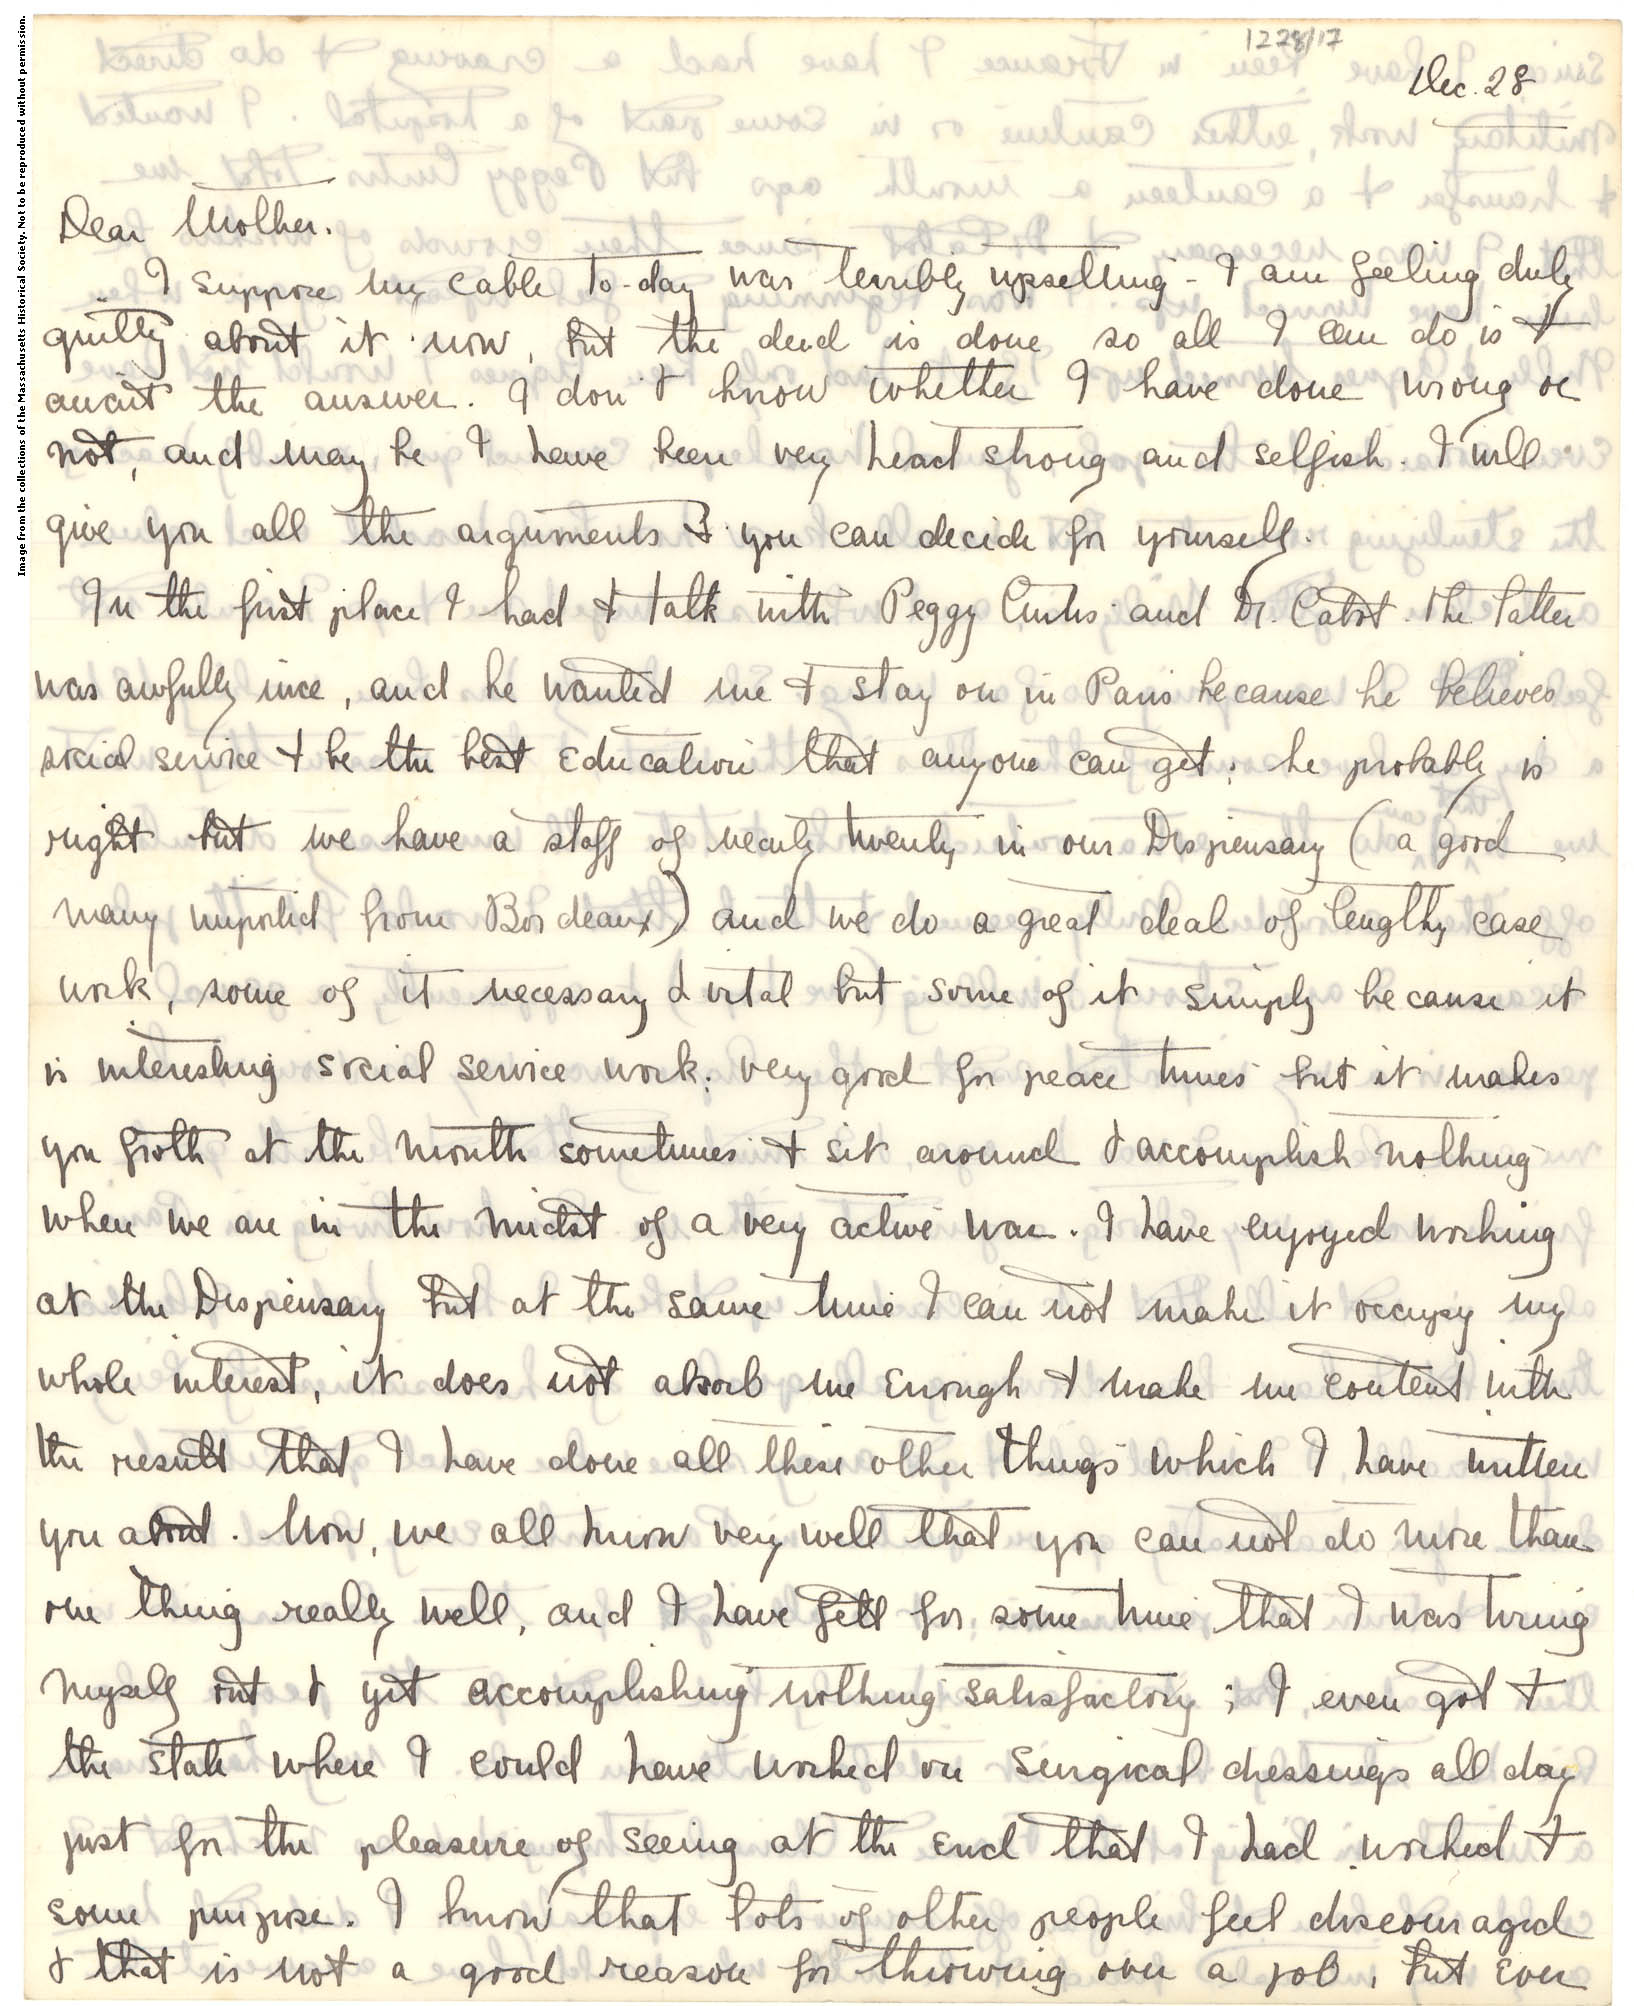 Image from the collections of the Massachusetts Historical Society. Not to be reproduced without permission.
12 28/17
Dec. 28
Dear Mother.
I suppose my cable to-day was terribly upsetting - I am feeling duly
guilty about it now, but the deed is done so all I can do is to
await the answer. I don't know whether I have done wrong or
not, and may be I have been very head strong and selfish. I will
give you all the arguments & you can decide for yourself.
In the first place I had to talk with Peggy Curtis and Dr. Cabot. The latter
was awfully nice, and he wanted me to stay on in Paris because he believes
social service to be the best education that anyone can get; he probably is
right but we have a staff of nearly twenty in our Dispensary (a good
many imported from Bordeaux) and we do a great deal of lengthy case
work, some of it necessary & vital but some of it simply because it
is interesting social service work; very good for peace times but it makes
you froth at the mouth sometimes to sit around & accomplish nothing
when we are in the midst of a very active war. I have enjoyed working
at the Dispensary but at the same time I can not make it occupy my
whole interest, it does not absorb me enough to make me content with
the result that I have done all these other things which I have written
you about. Now, we all know very well that you can not do more than
one thing really well, and I have felt for some time that I was tiring
myself out & yet accomplishing nothing satisfactory; I even got to
the state where I could have worked on surgical dressings all day
just for the pleasure of seeing at the end that I had worked to
some purpose. I know that lots of other people feel discouraged
& that is not a good reason for throwing over a job, but ever